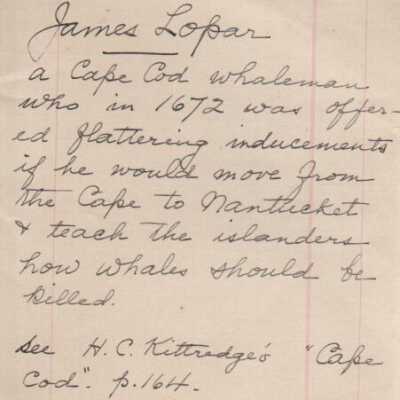 James Lopar
a Cape Cod whaleman
who in 1672 was offer-
ed flattering inducements
if he would move from
the Cape to Nantucket
& teach the islanders
how whales should be
killed.
see H. C. Kittredge's "Cape
Cod". p. 164.